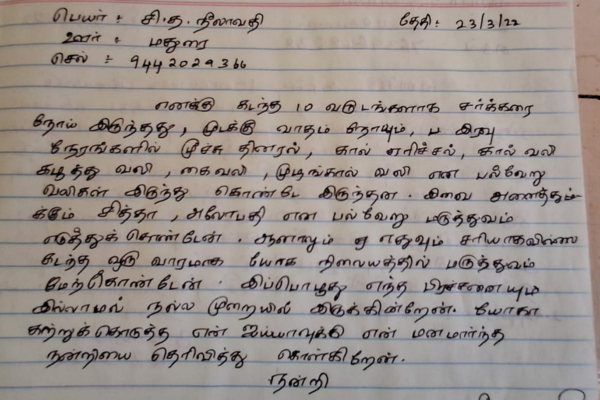 பெயர் : சி.த. நீலாவதி தேதி: 23/3/22
ஊர் : மதுரை
செல் : 9442029366
எனக்கு கடந்த 10 வருடங்களாக சர்க்கரை
நோய் இருந்தது, முடக்கு வாதம் நோயும், பல இரவு
நேரங்களில் மூச்சு திணரல், கால் எரிச்சல், கால் வலி
கழுத்து வலி, கைவலி, முழங்கால் வலி என பல்வேறு
வலிகள் இருந்து கொண்டே இருந்தன. இவை அனைத்தும்
க்கும் சித்தா, அலோபதி என பல்வேறு மருத்துவம்
எடுத்துக் கொண்டேன். ஆனாலும் எதுவும் சரியாகவில்லை
கடந்த ஒரு வாரமாக யோக நிலையத்தில் மருத்துவம்
மேற்கொண்டேன். இப்பொழுது எந்த பிரச்சனையும்
இல்லாமல் நல்ல முறையில் இருக்கின்றேன். யோகா
கற்றுக்கொடுத்த என் ஐய்யாவுக்கு என் மனமார்ந்த
நன்றியை தெரிவித்து கொள்கிறேன்.
நன்றி